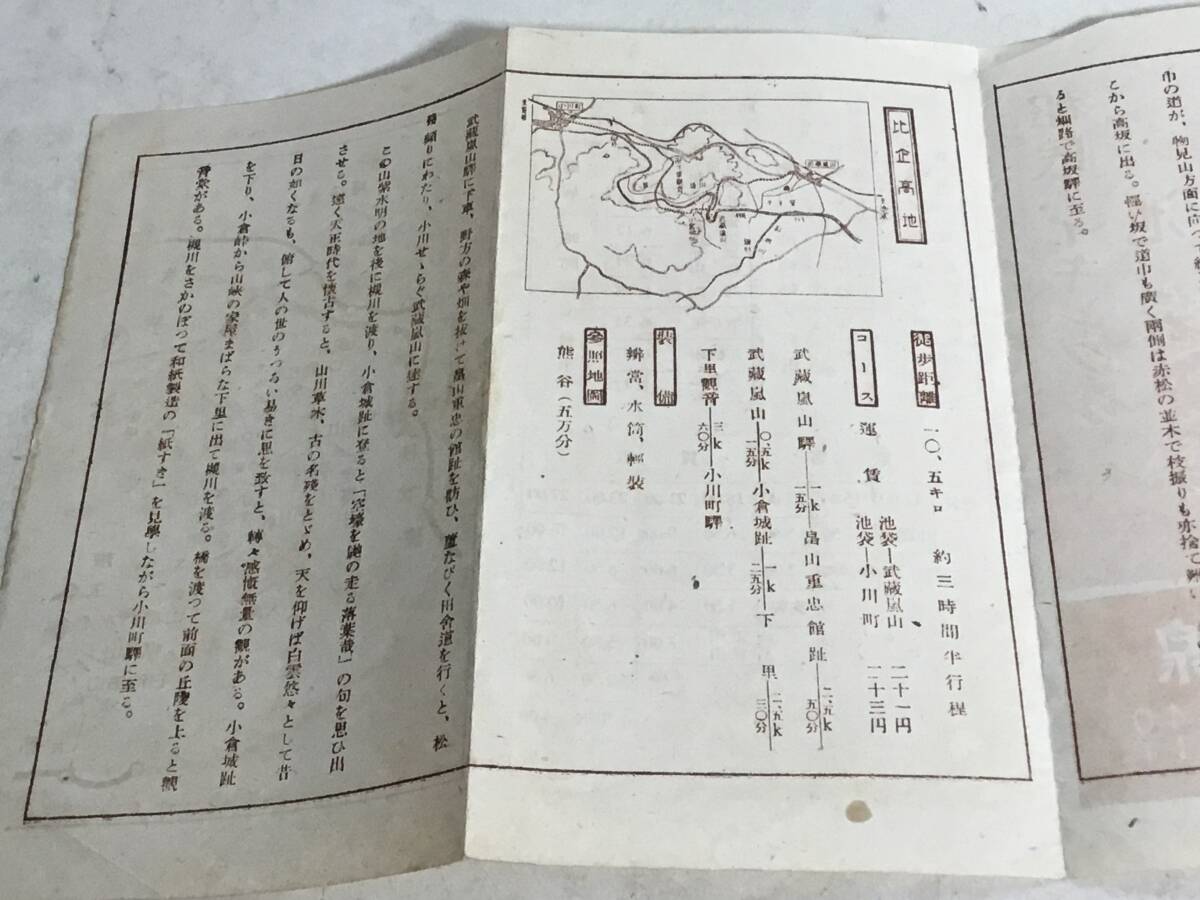 巾の道が、物見山方面に向つ
こから高坂に出る。輕い坂で道巾も廣く兩側は赤松の並木で枝振りも亦捨て難い
ると畑路で高坂驛に至る。
比企高地
小川町
武藏嵐山
徒歩距離 一〇、五キロ 約三時間半行程
コース 運賃 池袋―武藏嵐山 二十一円
池袋―小川町 二十三円
武藏嵐山驛 一k 一五分 畠山重忠館趾 二、五k 五〇分
武藏嵐山 〇、五k 一五分 小倉城趾 一k 二五分 下里 二、五k 三〇分
下里觀音 三k 六〇分 小川町驛
裝備
辨當、水筒、輕裝
參照地圖
熊谷(五万分)
武藏嵐山驛に下車、野方の森や畑を抜けて畠山重忠の館趾を訪ひ、靡なびく田舎道を行くと、松
籟頻りにわたり、小川せゝらぐ武藏嵐山に達する。
この山紫水明の地を後に槻川を渡り、小倉城趾に登ると「空壕を鉋の走る落葉哉」の句を思ひ出
させる。遠く天正時代を懷古すると、山川草木、古の名殘をとゞめ、天を仰げば白雲悠々として昔
日の如くなるも、俯して人の世のうつろい易きに思を致すと、轉々感慨無量の觀がある。小倉城趾
を下り、小倉峠から山峽の家屋まばらな下里に出て槻川を渡る。橋を渡つて前面の丘陵を上ると觀
音堂がある。槻川をさかのぼつて和紙製造の「紙すき」を見學しながら小川町驛に至る。